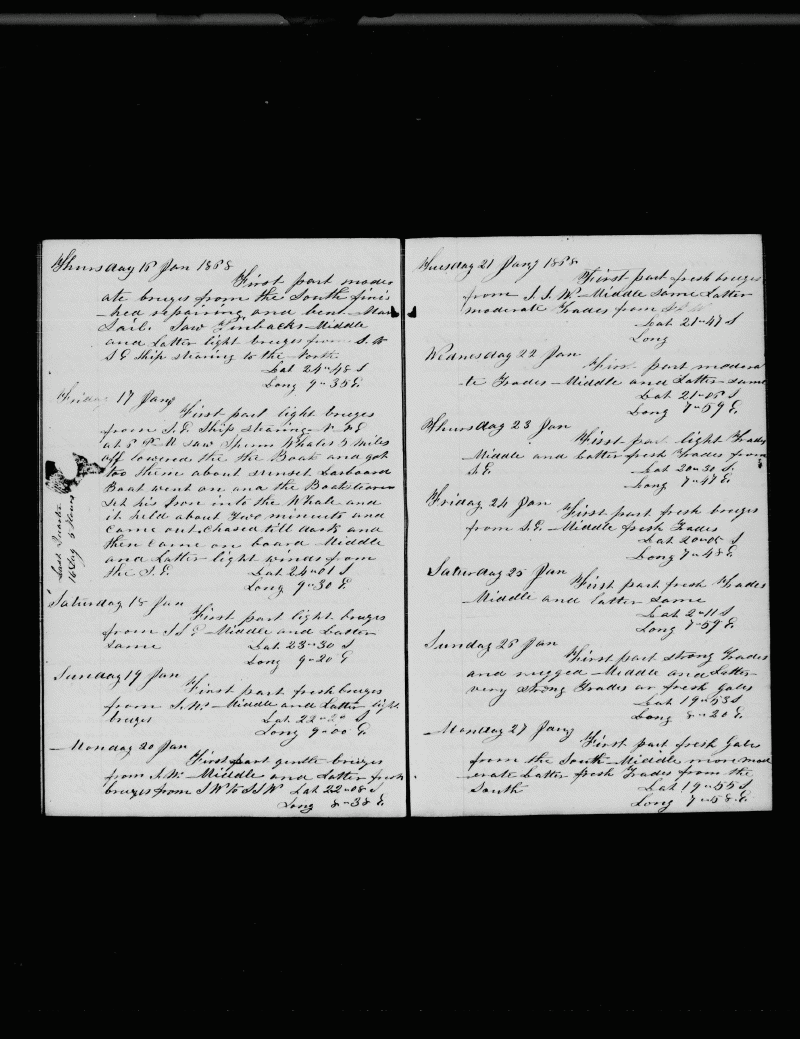 Thursday 16 Jan 1868
First part moder
ate brezes from the South finis
hed repairing and bent Main
Sail. Saw Finbacks Middle
and latter light brezes from S. &
S E Ship stearing to the North
Lat 24-48 S
Long 9-35 E
Friday 17 Jany
First part light brezes
from S.E. Ship stearing N N E
at 5 P.M saw Sperm Whales 5 miles
off lowered the the Boats and got
too them about sunset Larboard
Boat went on and the Boatstearer
Set his Iron into the Whale and
it held about Two minuits and
Came out Chased till dark and
then Came on board Middle
and Latter light winds from
the S.E. Lat 24-01 S
Long 9-30 E
Last Quarter
16 Day 5 hours
Saturday 18 Jan
First part light brezes
from S S E Middle and Latter
same Lat 23-30 S
Long 9-20 E
Sunday 19 Jan
First part fresh brezes
from S.W. Middle and Latter light
brezes Lat 22- S
Long 9-00 E
Monday 20 Jan
First part gentle brezes
from S.W. Middle and Latter fresh
brezes from S W to S S W Lat 22-08 S
Long 8-38 E
Tuesday 21 Jany 1868
First part fresh brezes
from S.S.W. Middle same Latter
moderate Trades from
Lat 21-47 S
Long
Wednesday 22 Jan
First part modera
te Trades Middle and Latter same
Lat 21-05 S
Long 7-59 E
Thursday 23 Jan
First part light Trades
Middle and latter fresh Trades from
S.E. Lat 20-30 S.
Long 7-47 E.
Friday 24 Jan
First part fresh brezes
from S.E. Middle fresh Trades
Lat 20-0 S
Long 7-48 E
Saturday 25 Jan
First part fresh Trades
Middle and latter same
Lat 2-11 S
Long 7-59 E
Sunday 26 Jan
First part strong Trades
and rugged Middle and Latter
very strong Trades or fresh gales
Lat 19-53 S
Long 8-20 E.
Monday 27 Jany
First part fresh Gale
from the South Middle more mod
erate Latter fresh Trades from the
South Lat 19-55 S
Long 7-58 E.